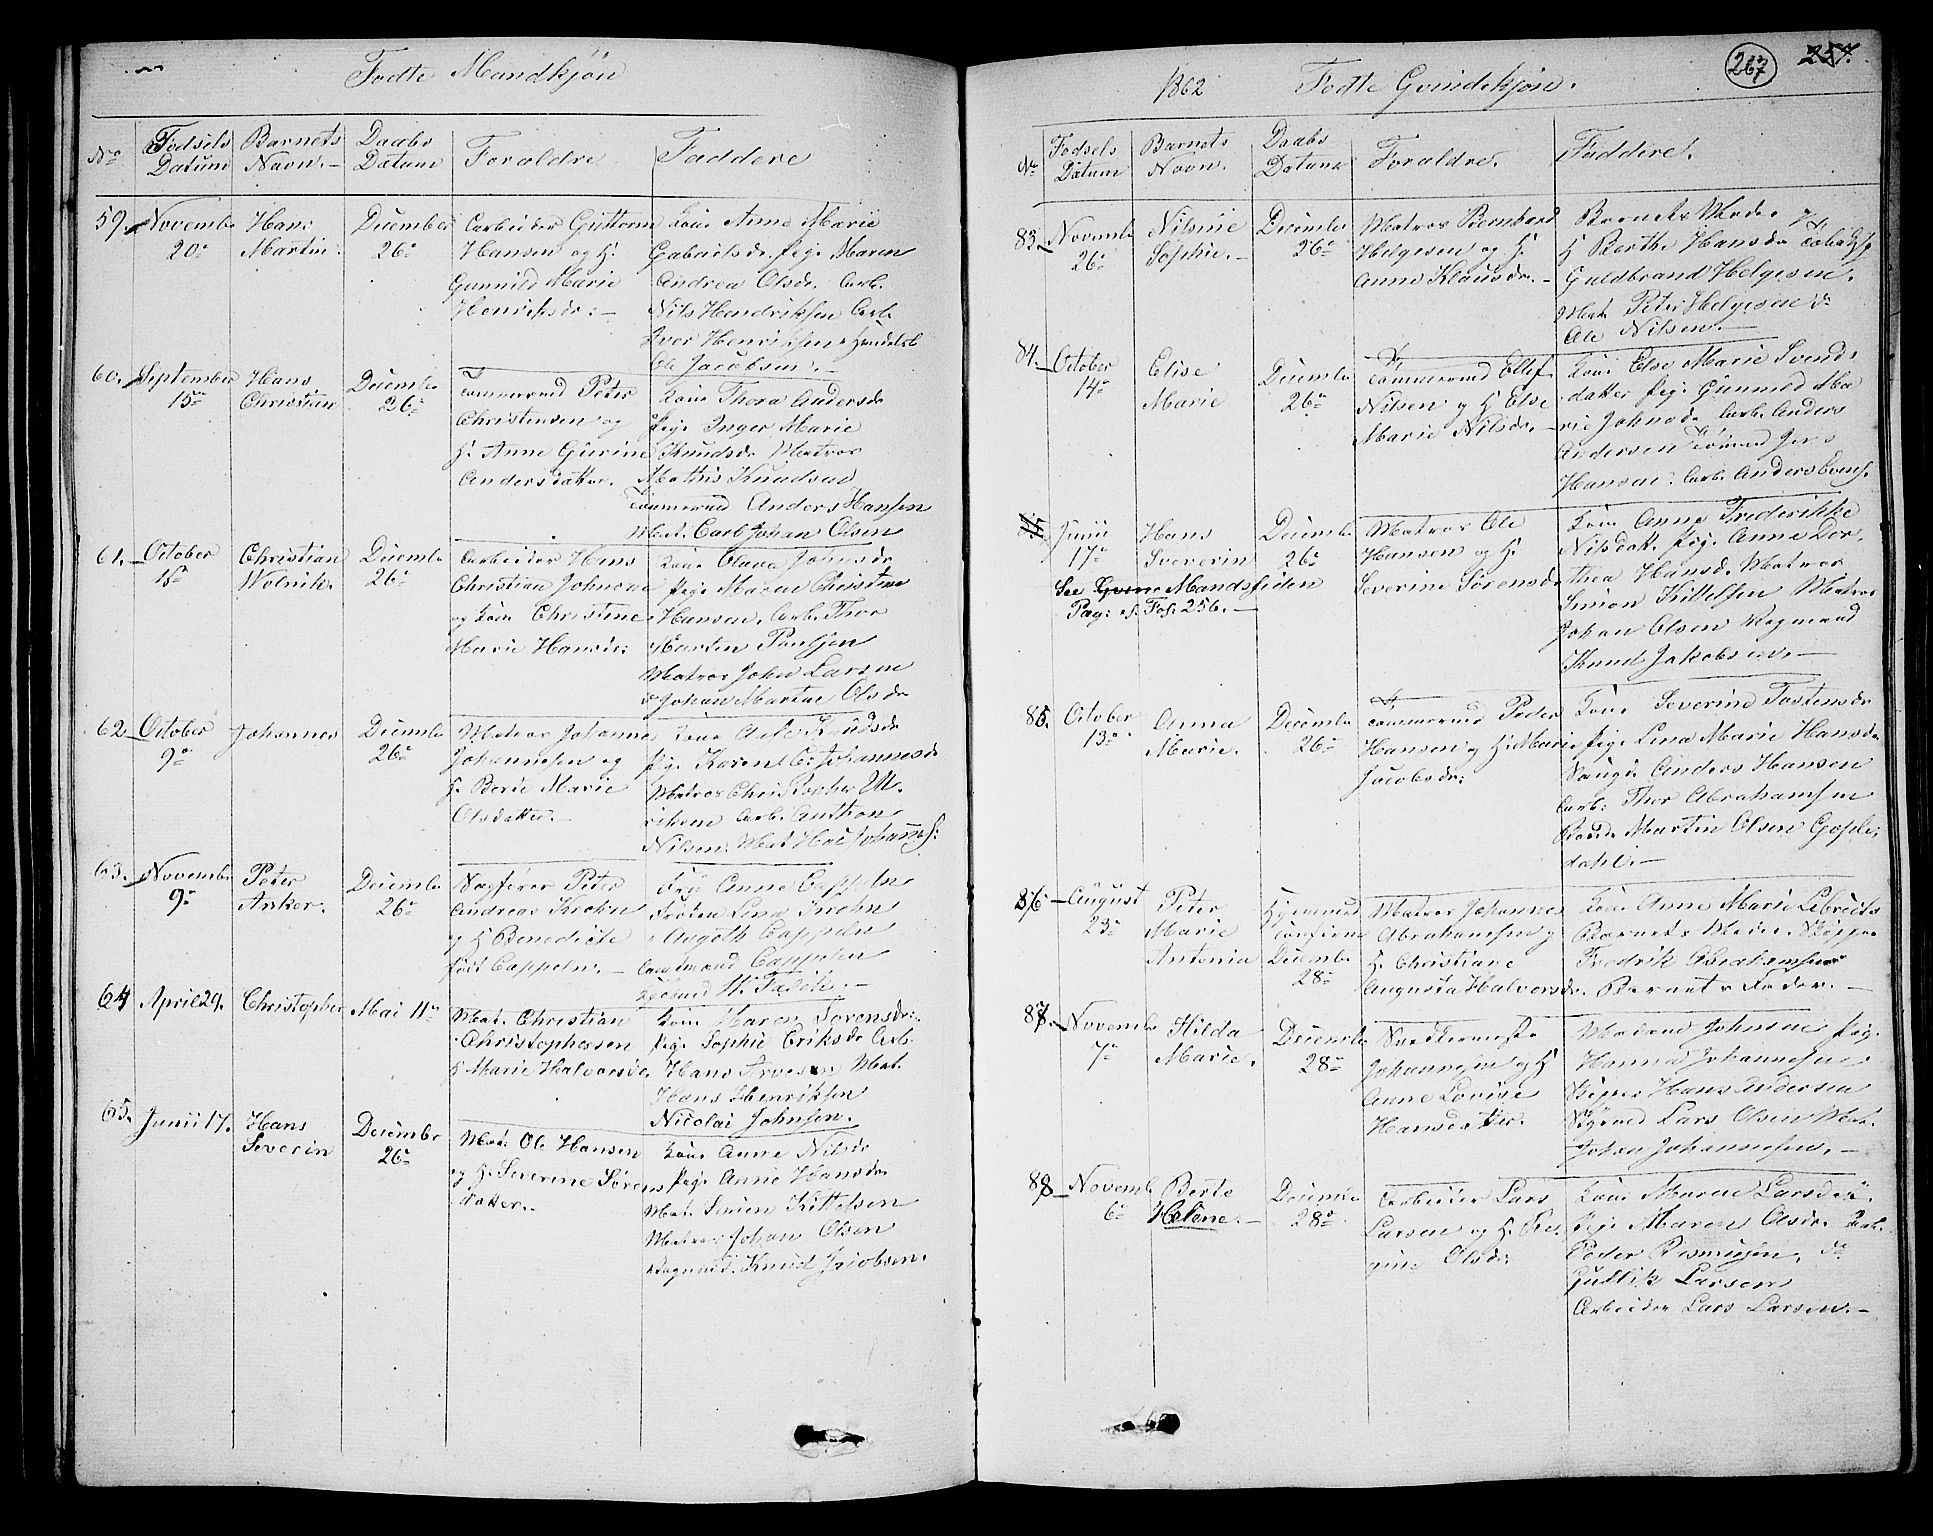 Fødte Mandkjøn
No
Fødsels Datum
Barnets Navn.
Daabs Datum
Forældre
Faddere
59. November 20de
Hans Martin.
December 26de
Arbeider Guttorm
Hansen og H.
Gunnild Marie
Henriksdr.
Kone Anne Marie
Gabrielsdr. Pige Maren
Andrea Olsdr. Arb.
Nils Hendriksen Arb.
Iver Henriksen Handelsb.
Ole Jacobsen.
60. September 15de
Hans Christian
December 26de
Tømmermd Peter
Christensen og
H. Anne Gurine
Andersdatter.
Kone Thora Andersdr
Pige Inger Marie
Knudsdr Matros
Mathis Knudsen
Tømmermd Anders Hansen
Mat. Carl Johan Olsen
61. October
Christian Wolnik.
December 26de
Arbeider Hans
Christian Johnsen
og Kone Christine
Marie Hansdr.
Kone Olava Johnsdr
Pige Maren Christine
Hansen. Arb. Thor
Martin Paulsen
Matros John Larsen
Johan Martin Olsdr
62. October 9de
Johannes
December 26de
Matros Johannes
Johannesen og
H. Berte Marie
Olsdatter.
Kone Knudsdr
Pige Karen C. Johannesdr
Matros Christopher Ul-
riksen Arb. Anthon
Nilsen. Mat. Johannes.
63. November 9de
Peter Anker.
December 26de
Sagfører Peter
Andreas Krohn
og H. Benedicte
født Cappeln.
Frue Anne Cappeln
Frøken Lina Krohn
Cappeln
Cappelen
H. Falck.
64 April 29.
Christopher
Mai 11te
Mat. Christian
Christophersen
H. Marie Halvorsdr.
Kone Maren Sørensdr.
Pige Sophie Eriksdr Arb.
Hans Mat.
Hans Henriksen
Nicolai Johnsen.
65. Junii 17.
Hans Severin
December 26de
Mat. Ole Hansen
og H. Severine Sørens
datter.
Kone Anne Nilsdr
Pige Anne Hansdr
Mat. Simen Kittelsen
Matros Johan Olsen
Vognmd. Knud Jacobsen.
267 257.
1862 Fødte Qvindekjøn.
No
Fødsels Datum
Barnets Navn.
Daabs Datum
Forældre.
Faddere.
83. November 26de
Nilsine Sophie.
December 26de
Matros Bernhard
Helgesen og H.
Anne Klausdr.
Barnets Moder
H. Berthe Hansdr
Guldbrand Helgesen.
Mat. Peter Helgesen do
Ole Nilsen.
84. October 14de
Elise Marie
December 26de
Tømmermd Ellef
Nilsen og H. Else
Marie Nilsdr.
Kone Else Marie Svends-
datter Pige Gunnild Ma
rie Johnsdr Arb. Anders
Andersen Tømmermd Jens
Hansen. Arb. Anders Evens.
85 Junii 17de
Hans Severin
December 26de
Matros Ole
Hansen og H.
Severine Sørensdr
Kone Anne Frederikke
Nilsdatt. Pige Anne Dor-
thea Hansdr. Matros
Simon Kittelsen Matros
Johan Olsen Vogmand
Knud Jakobsen.
See Mandssiden
Pag: Fol: 256.
85. October 13de
Anna Marie.
December 26de
Tømmermd Peder
Hansen og H. Marie
Jacobsdr.
Kone Severine Tostensdr
Pige Lina Marie Hansdr
Anders Hansen
Arb: Thor Abrahamsen
Martin Olsen Gople-
dahl.
86 August 23de
Peter Marie Antonia
Hjemmed
Confirm.
December 28de
Matros Johannes
Abrahamsen og
H. Christiane
Augusta Halvorsdr.
Kone Anne Marie Lebrecths
Barnets Moder. Skipper
Fredrik Abrahamsen
Barnets Fader.
87. November 7de
Hilda Marie.
December 28de
Johannesen og H.
Anne Lovise
Hansdatter.
Madame Johnsen Pige
Hanna Johannesen
Skipper Hans Andersen
Lars Olsen Mat.
Johan Johannesen.
88 November 6de
Berte Helene.
December 28de
Arbeider Lars
Larsen og H. Re-
gine Olsdr.
Kone Maren Larsdr
Pige Maren Olsdr. Arb.
Peder Rasmusen. do
Gullik Larsen
Arbeider Lars Larsen.